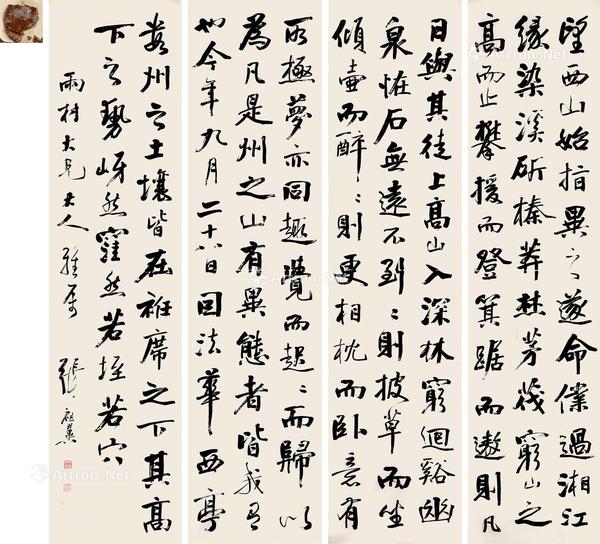 望西山始指異之遂命僕過湘江
緣染溪斫榛莽焚茅茷窮山之
高而止攀援而登箕踞而遨則凡
日與其徒上高山入深林窮迴谿幽
泉怪石無遠不到〻則披草而坐
傾壺而醉〻則更相枕而臥意有
所極夢亦同趣覺而起〻而歸以
為凡是州之山有異態者皆我有
也今年九月二十八日因法華西亭
數州之土壤皆在衽席之下其高
下之勢岈然窪然若垤若穴
雨村大兄大人雅屬 張祖翼
Artron.Net